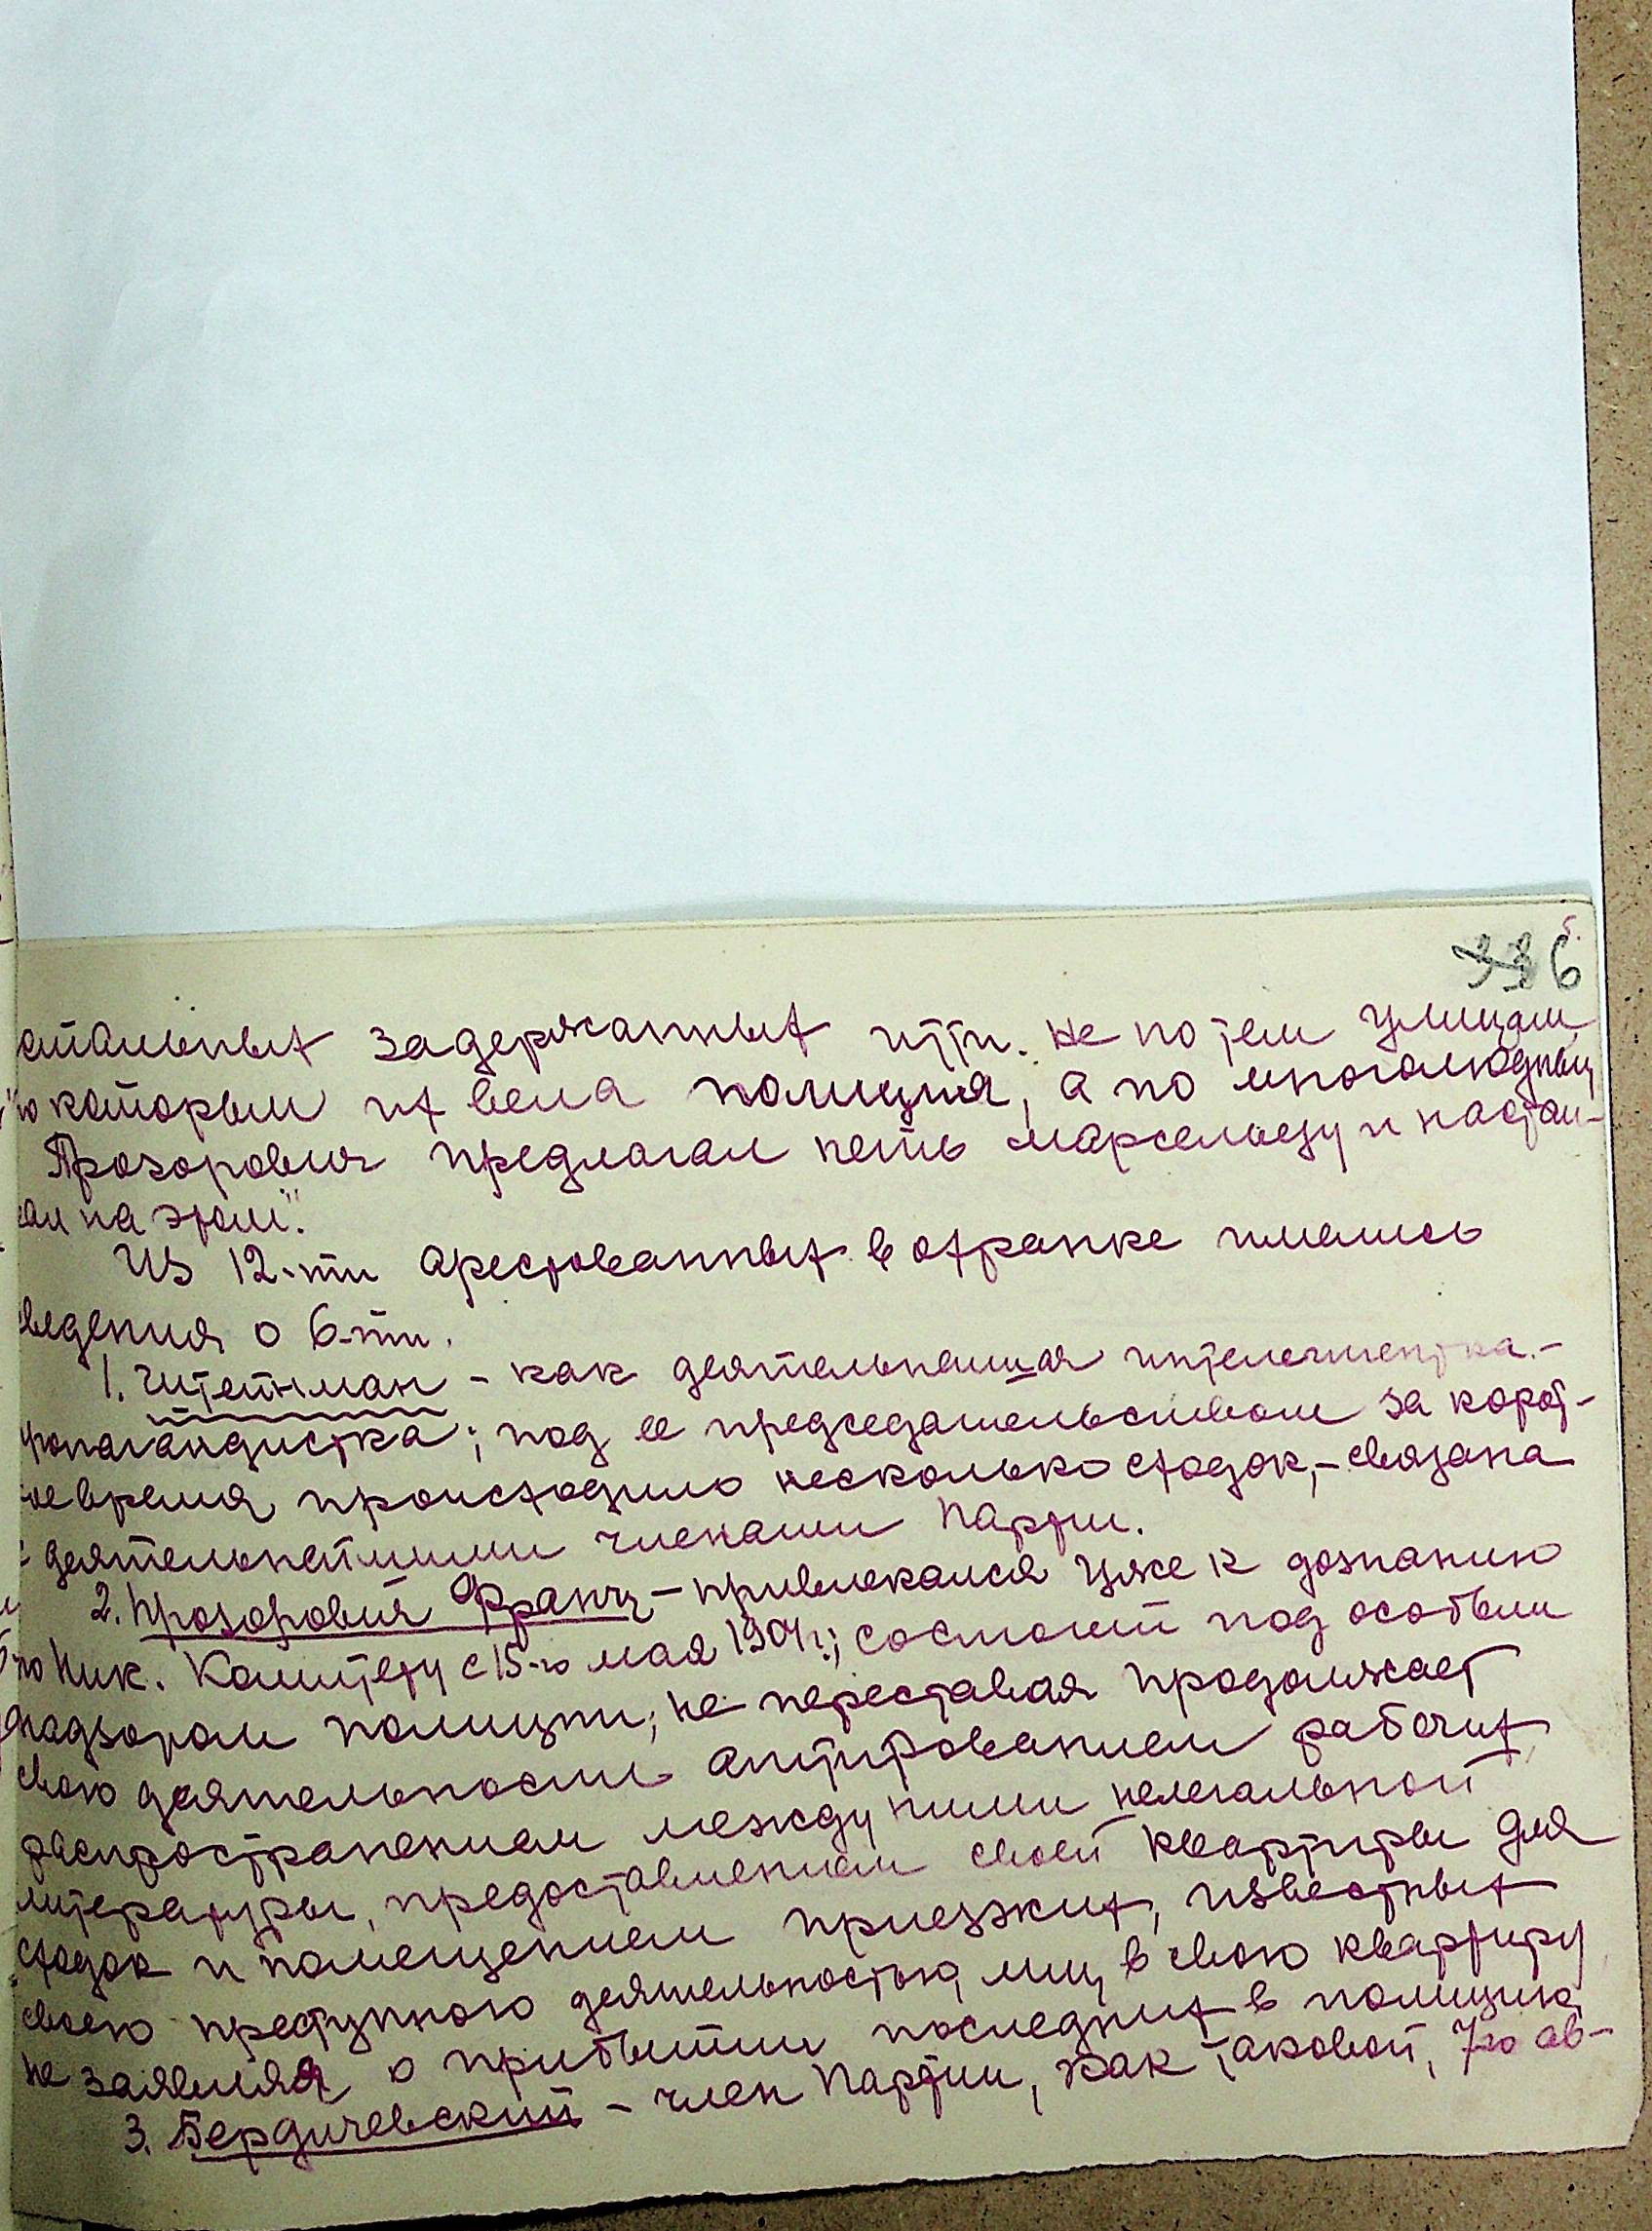 6
стальных задержанных итти не по тем улицам,
по которым их вела полиция, а по многолюдным
Прозорович предлагал петь марсельезу и настаи-
вал на этом".
Из 12-ти арестованных в охранке имелись
сведения о 6-ти.
1. Штейнман - как деятельнейшая интелегентка-
пропагандистка; под ее председательством за корот-
кое время происходило несколько сходок, - связана
с деятельнейшими членами партии.
2. Прозорович Франц - привлекался уже к дознанию
по Ник. Комитету с 15-го мая 1904 г.; состоит под особым
надзором полиции; не переставая продолжает
свою деятельность агитированием рабочих,
распространением между ними нелегальной
литературы, предоставлением своей квартиры для
сходок и помещением приезжих, известных
своею преступною деятельностью, лиц в свою квартиру
не заявляя о прибытии последних в полицию
3. Бердичевский - член партии, как таковой, 7го ав-